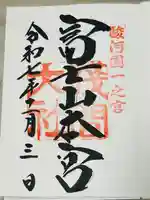 駿河国一之宮
富士山本宮
浅間大社
令和七年一月三日